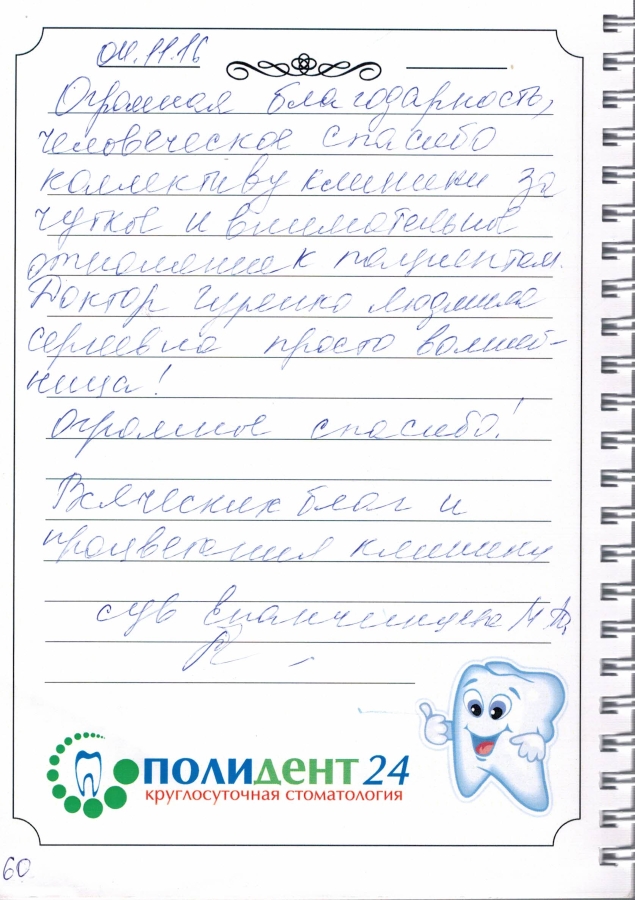 04.11.16
Огромная благодарность,
человеческое спасибо
коллективу клиники за
чуткое и внимательное
отношение к пациентам.
Доктор Гуренко Людмила
Сергеевна просто волшеб-
ница!
Огромное спасибо!
Всяческих благ и
процветания клинике
ПОЛИДЕНТ 24
круглосуточная стоматология
60